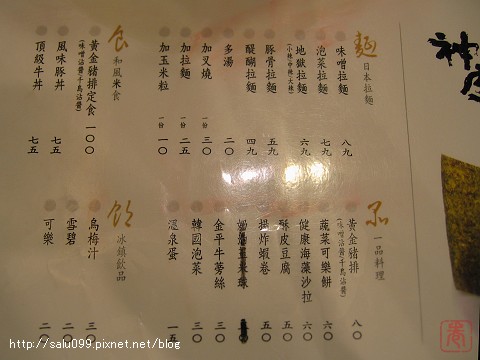 麵 日本拉麵
味噌拉麵 八九
泡菜拉麵 七九
地獄拉麵 六九
(小辣.中辣.大辣)
豚骨拉麵 五九
醍醐拉麵 四九
多湯 二〇
加叉燒 一份 三〇
加拉麵 一份 二五
加玉米粒 一份 一〇
食 和風米食
黃金豬排定食 一〇〇
(味噌沾醬/千島沾醬)
風味豚丼 七五
頂級牛丼 七五
品 一品料理
黃金豬排 八〇
(味噌沾醬/千島沾醬)
蔬菜可樂餅 六〇
健康海藻沙拉 六〇
酥皮豆腐 五〇
揚炸蝦卷 五〇
金平牛蒡絲 三〇
韓國泡菜 三〇
溫泉蛋 一五
飲 冰鎮飲品
烏梅汁 三〇
雪碧 二〇
可樂 二〇
神
http://salu099.pixnet.net/blog